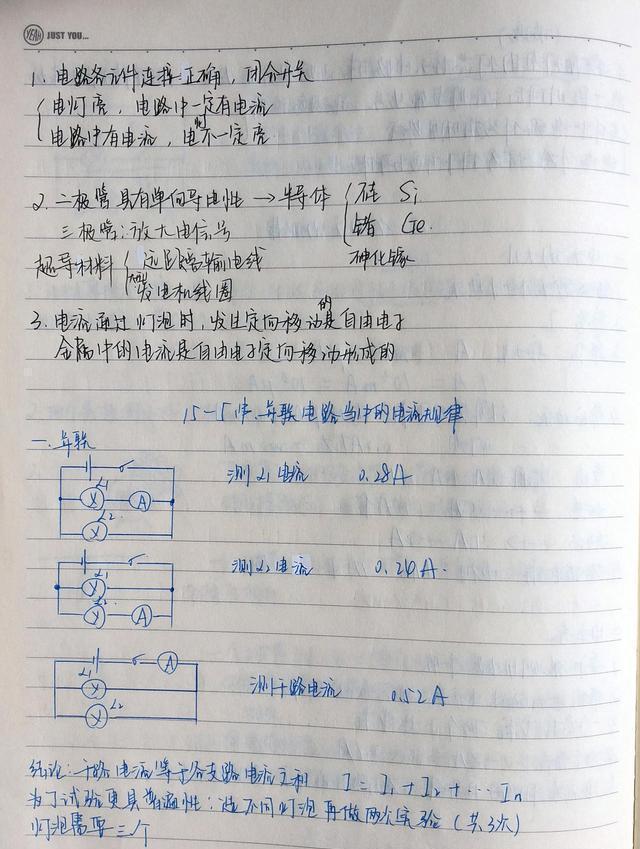 YEAH JUST YOU...
1. 电路各元件连接正确，闭合开关
电灯亮，电路中一定有电流
电路中有电流，电灯不一定亮
2. 二极管具有单向导电性 → 半导体 硅 Si
三极管：放大电信号 锗 Ge.
超导材料 远距离输电线 砷化镓
发电机线圈
3. 电流通过灯泡时，发生定向移动的是自由电子
金属中的电流是自由电子定向移动形成的
15-5 串、并联电路当中的电流规律
一. 并联
L1 A
测L1电流 0.28A
L2
L1
测L2电流 0.24A.
L2 A
A
L1
测干路电流 0.52A
L2
结论：干路电流等于各支路电流之和 I = I1 + I2 + … In
为了试验更具普遍性：选不同灯泡再做两次实验（共3次）
灯泡需要三个